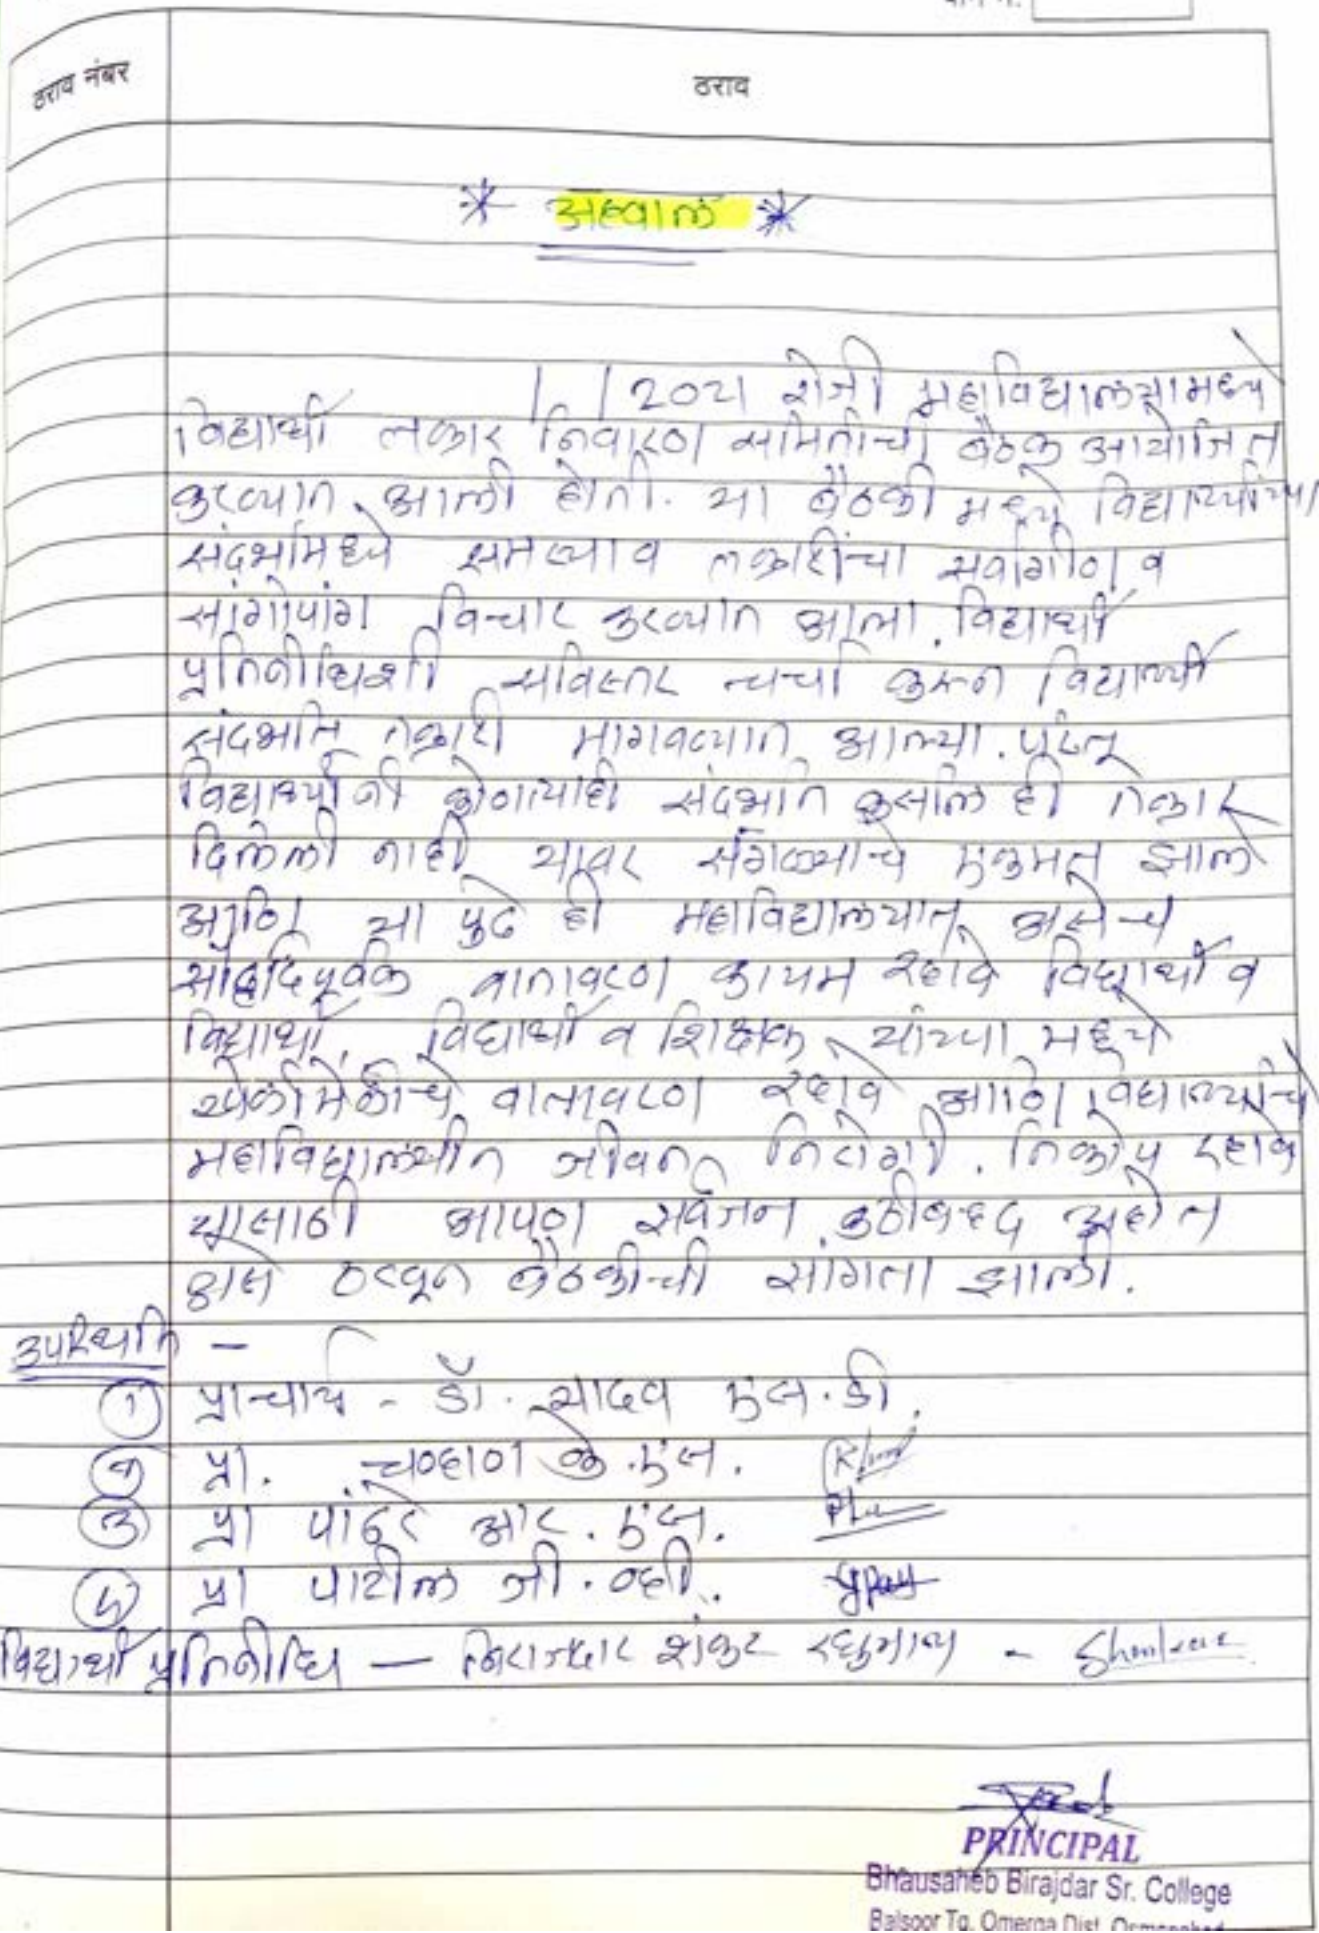 पान नं.
ठराव नंबर
ठराव
* अहवाल *
/ / 2021 रोजी महाविद्यालयामध्ये
विद्यार्थी तक्रार निवारण समितीची बैठक आयोजित
करण्यात आली होती. या बैठकी मध्ये विद्यार्थ्यांच्या
संदर्भामध्ये समस्या व तक्रारींचा सर्वांगीण व
सांगोपांग विचार करण्यात आला. विद्यार्थी
प्रतिनीधिशी सविस्तर चर्चा करून विद्यार्थी
संदर्भात तक्रारी मागवण्यात आल्या. परंतू
विद्यार्थ्यांनी कोणत्याही संदर्भात कसलि ही तक्रार
दिलेली नाही यावर सगळ्यांचे एकमत झाले
आणि या पुढे ही महाविद्यालयात असेच
सौहार्दपूर्वक वातावरण कायम रहावे विद्यार्थी व
विद्यार्थी, विद्यार्थी व शिक्षक यांच्या मध्ये
वातावरण रहावे आणि विद्यार्थ्यांचे
महाविद्यालयीन जीवन निरोगी, निकोप रहावे
यासाठी आपण सर्वजन कठीबध्द अहोत
असे ठरवून बैठकीची सांगता झाली.
उपस्थिति -
① प्राचार्य - डॉ. यादव एस. डी.
② प्रा. चव्हाण के. एस.
③ प्रा पांढरे आर. एस.
④ प्रा पाटील जी. व्ही.
विद्यार्थी प्रतिनीधि — शंकर - Shankar
PRINCIPAL
Bhausaheb Birajdar Sr. College
Balsoor Tq. Omerga Dist. Osmanabad